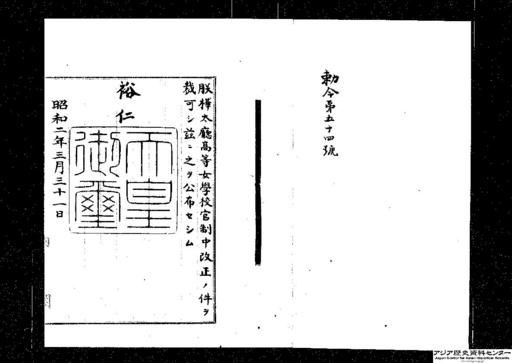 勅令第五十四號
朕樺太廳高等女學校官制中改正ノ件ヲ
裁可シ玆ニ之ヲ公布セシム
裕仁
天皇御璽
昭和二年三月三十一日
アジア歴史資料センター
Japan Center for Asian Historical Records